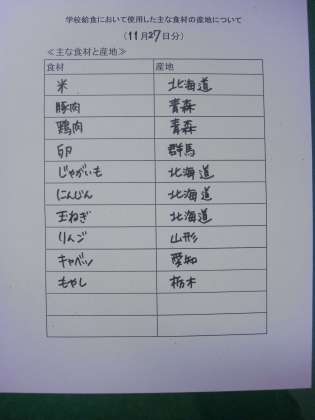 学校給食において使用した主な食材の産地について
(11月27日分)
≪主な食材と産地≫
食材 産地
米 北海道
豚肉 青森
鶏肉 青森
卵 群馬
じゃがいも 北海道
にんじん 北海道
玉ねぎ 北海道
りんご 山形
キャベツ 愛知
もやし 栃木